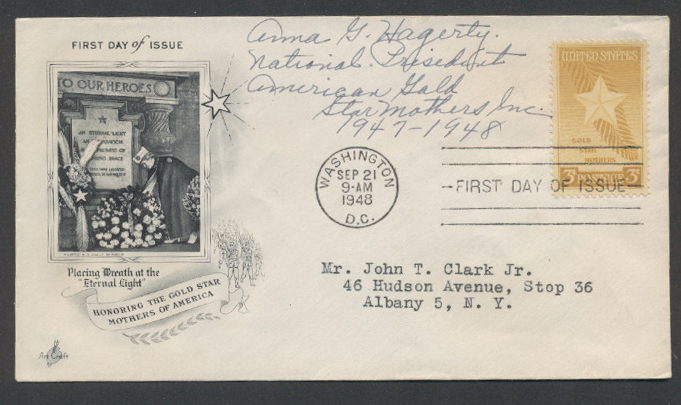 FIRST DAY of ISSUE
Anna G. Hagerty.
National President
American Gold
Star Mothers Inc.
1947-1948
TO OUR HEROES
AN ETERNAL LIGHT
UNITED STATES
GOLD
STAR
MOTHERS
3¢
WASHINGTON
SEP 21
9-AM
1948
D.C.
FIRST DAY OF ISSUE
Placing Wreath at the
"Eternal Light"
HONORING THE GOLD STAR
MOTHERS OF AMERICA
Art Craft
Mr. John T. Clark Jr.
46 Hudson Avenue, Stop 36
Albany 5, N. Y.